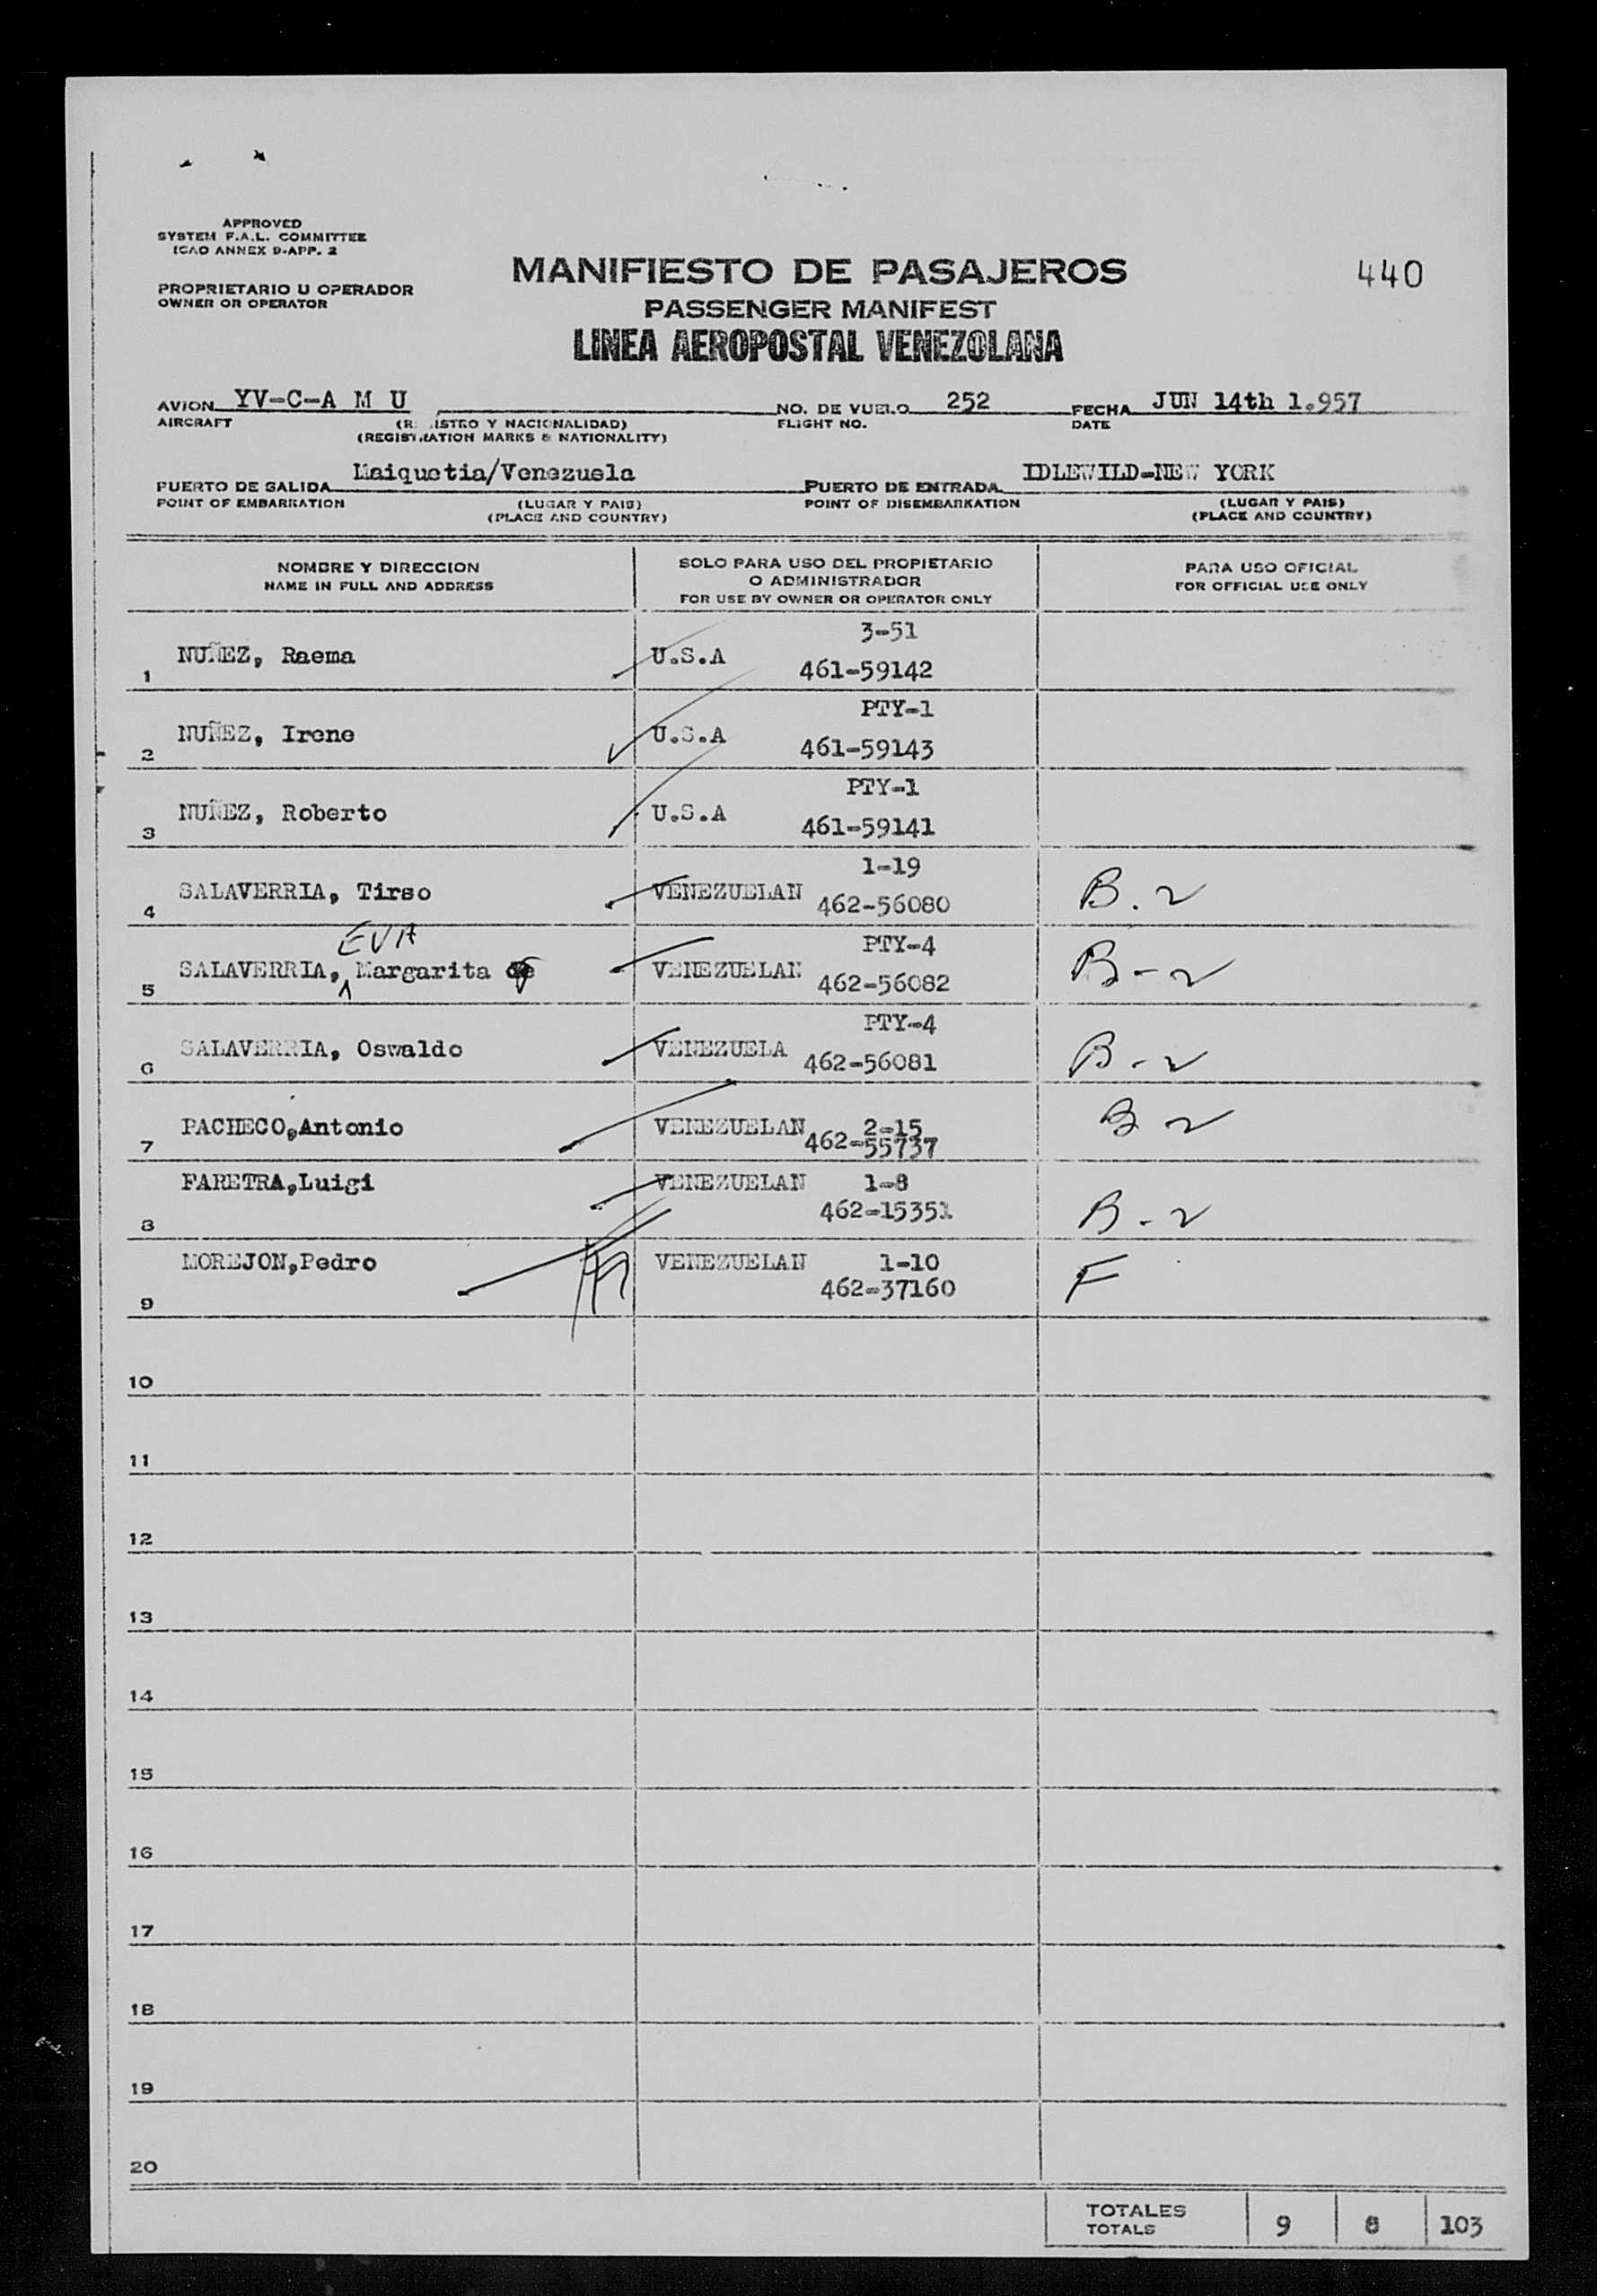 APPROVED
SYSTEM F.A.L. COMMITTEE
ICAO ANNEX 9-APP. 2
MANIFIESTO DE PASAJEROS
440
PROPRIETARIO U OPERADOR
OWNER OR OPERATOR
PASSENGER MANIFEST
LINEA AEROPOSTAL VENEZOLANA
AVION YV-C-A M U NO. DE VUELO 252 FECHA JUN 14th 1.957
AIRCRAFT (REGISTRO Y NACIONALIDAD) FLIGHT NO. DATE
(REGISTRATION MARKS & NATIONALITY)
PUERTO DE SALIDA Maiquetia/Venezuela PUERTO DE ENTRADA IDLEWILD-NEW YORK
POINT OF EMBARKATION (LUGAR Y PAIS) POINT OF DISEMBARKATION (LUGAR Y PAIS)
(PLACE AND COUNTRY) (PLACE AND COUNTRY)
NOMBRE Y DIRECCION
NAME IN FULL AND ADDRESS
SOLO PARA USO DEL PROPIETARIO
O ADMINISTRADOR
FOR USE BY OWNER OR OPERATOR ONLY
PARA USO OFICIAL
FOR OFFICIAL USE ONLY
3-51
1 NUÑEZ, Raema U.S.A 461-59142
PTY-1
2 NUÑEZ, Irene U.S.A 461-59143
PTY-1
3 NUÑEZ, Roberto U.S.A 461-59141
1-19
4 SALAVERRIA, Tirso VENEZUELAN 462-56080 B.2
EVA PTY-4
5 SALAVERRIA, Margarita de VENEZUELAN 462-56082 B-2
PTY-4
6 SALAVERRIA, Oswaldo VENEZUELA 462-56081 B-2
7 PACHECO,Antonio VENEZUELAN 2-15 B 2
462-55737
FARETRA,Luigi VENEZUELAN 1-8
8 462-15351 B-2
MOREJON,Pedro VENEZUELAN 1-10 F
9 462-37160
10
11
12
13
14
15
16
17
18
19
20
TOTALES
TOTALS 9 8 103